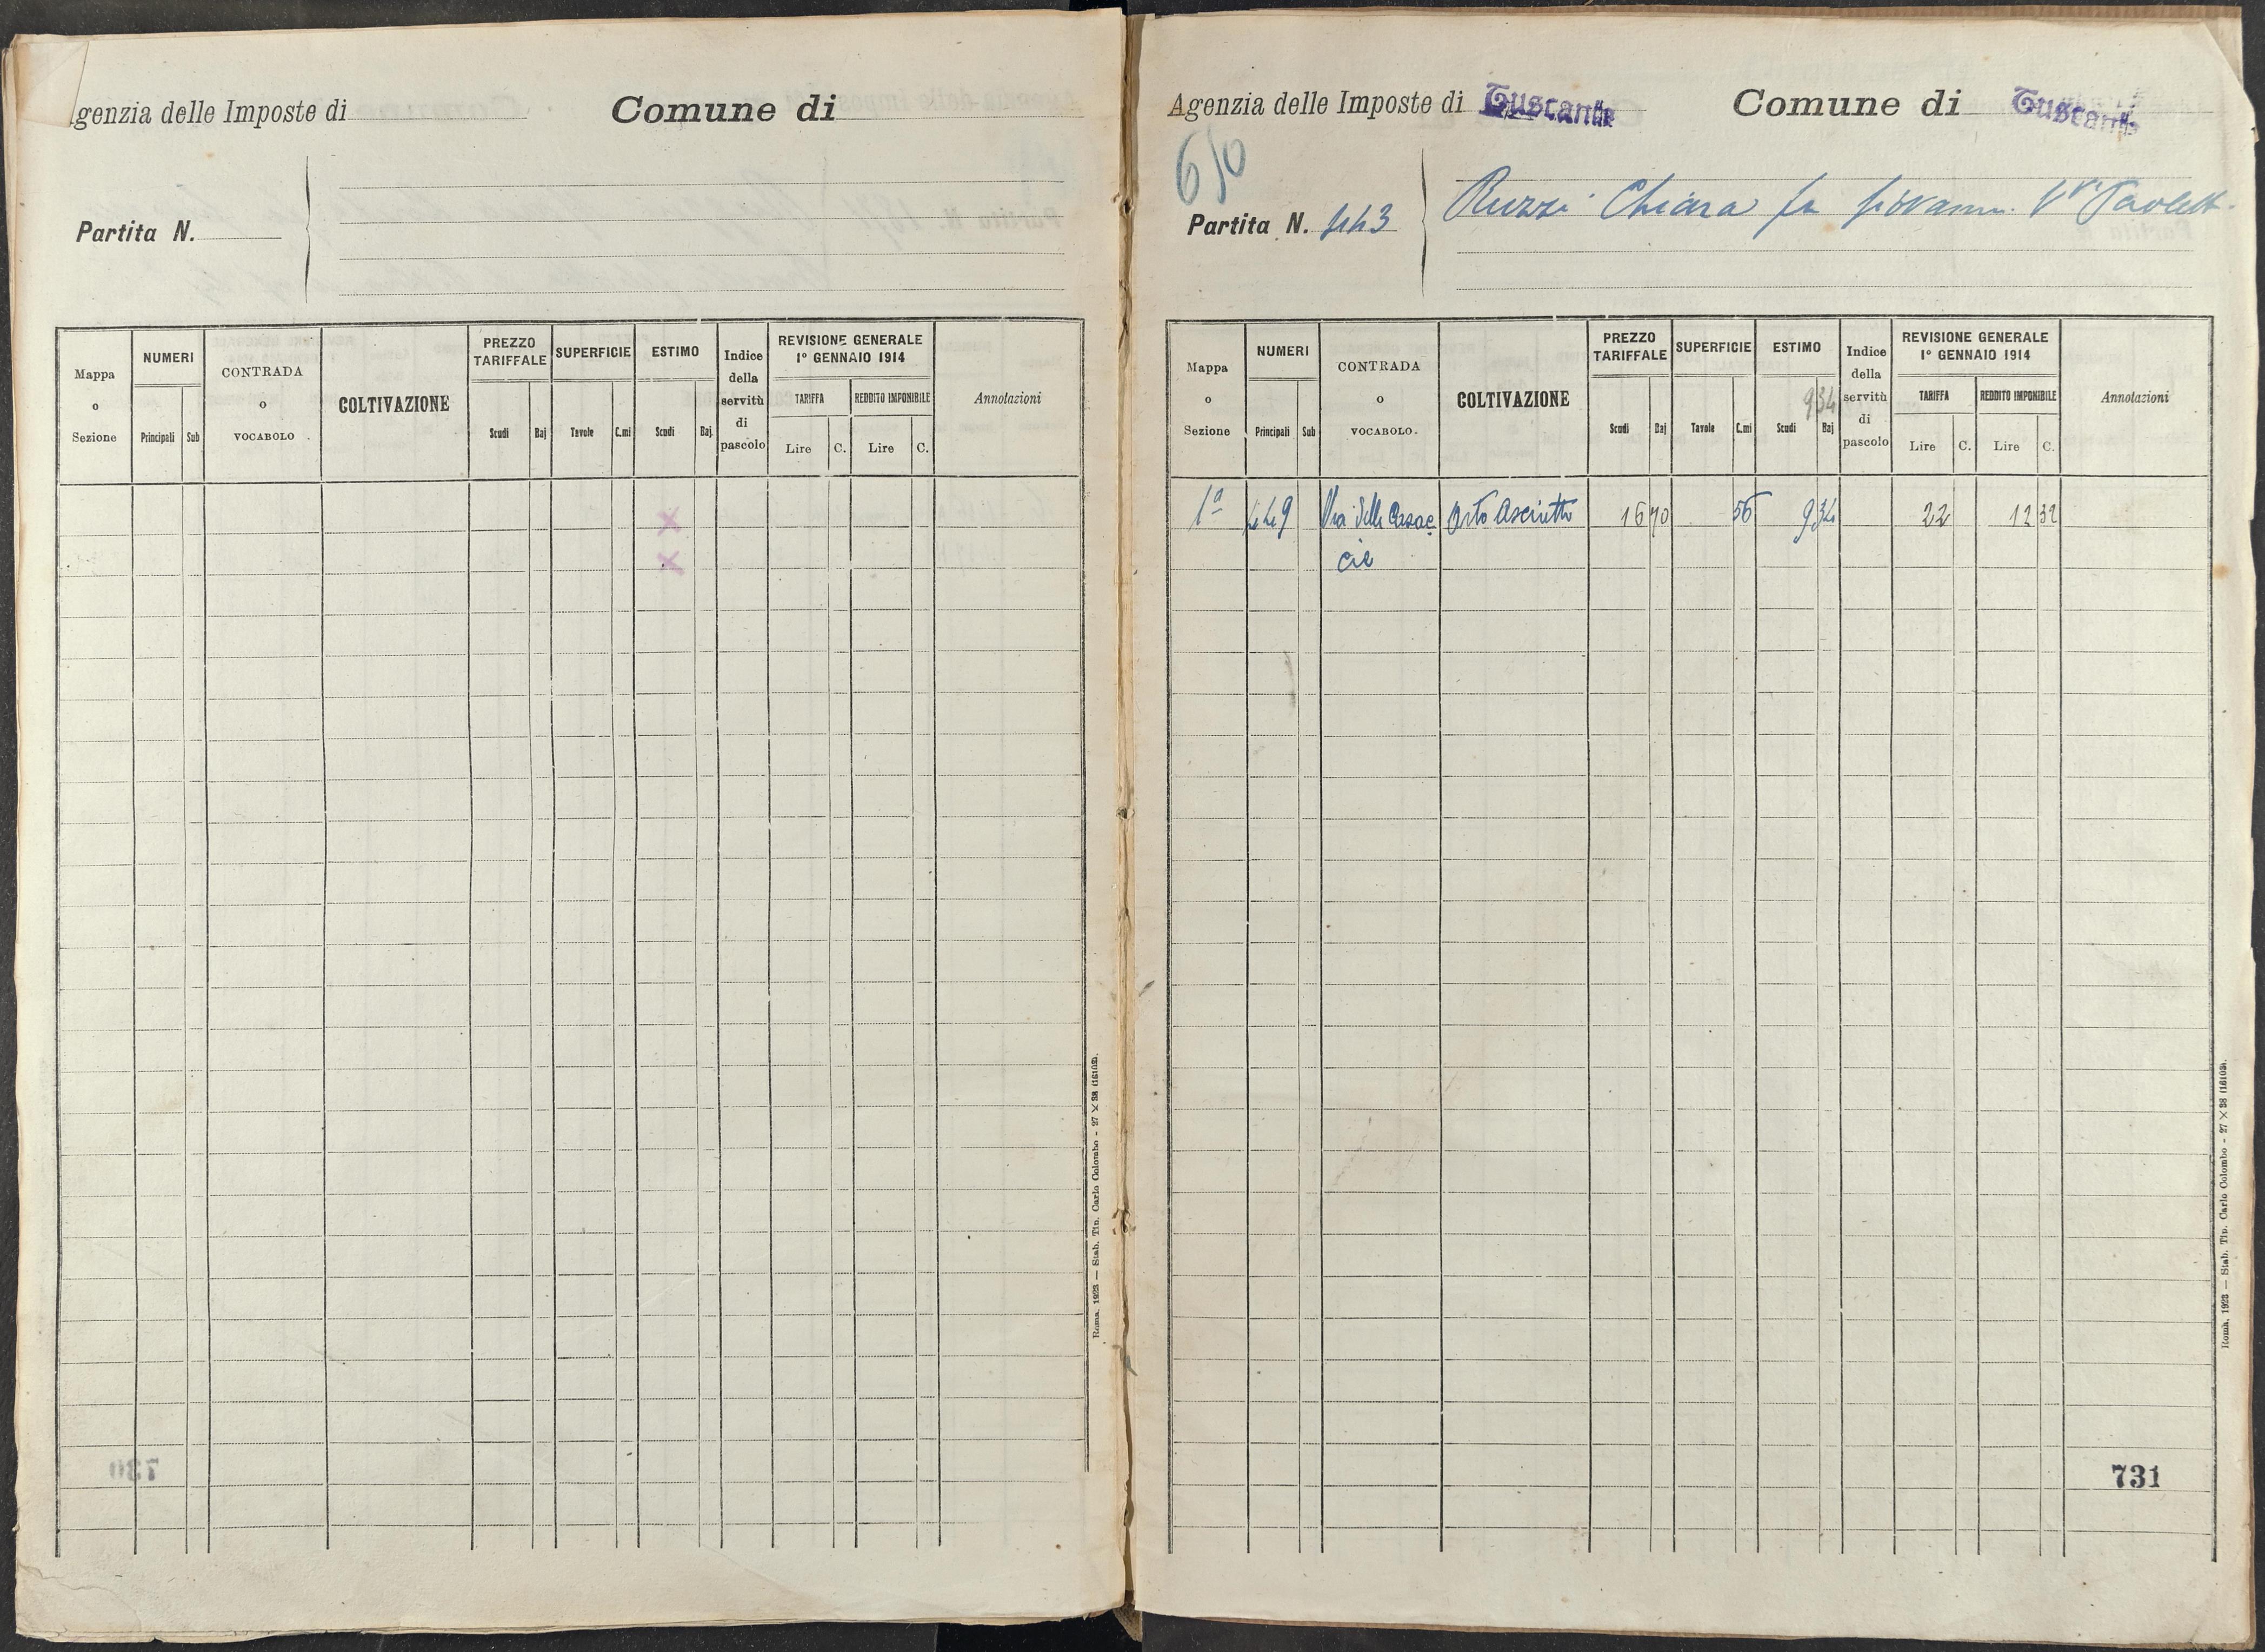 genzia delle Imposte di
Comune di
Partita N.
Mappa o Sezione
NUMERI
Principali Sub
CONTRADA o VOCABOLO
COLTIVAZIONE
PREZZO TARIFFALE
Scudi Baj
SUPERFICIE
Tavole C.mi
ESTIMO
Scudi Baj.
Indice della servitù di pascolo
REVISIONE GENERALE
1° GENNAIO 1914
TARIFFA
Lire C.
REDDITO IMPONIBILE
Lire C.
Annotazioni
X
X
730
Roma, 1923 — Stab. Tip. Carlo Colombo - 27 × 38 (16103).
Agenzia delle Imposte di Tuscania
Comune di Tuscania
650
Partita N. 443
Ruzzi Chiara fu Giovanni Vª Paolett.
Mappa o Sezione
NUMERI
Principali Sub
CONTRADA o VOCABOLO.
COLTIVAZIONE
PREZZO TARIFFALE
Scudi Baj
SUPERFICIE
Tavole C.mi
ESTIMO
934
Scudi Baj
Indice della servitù di pascolo
REVISIONE GENERALE
1° GENNAIO 1914
TARIFFA
Lire C.
REDDITO IMPONIBILE
Lire C.
Annotazioni
1ª 449 Via delle Casac Orto Asciutto 16 70 56 9 34 22 12 32
cie
731
Roma, 1923 — Stab. Tip. Carlo Colombo - 27 × 38 (16103).